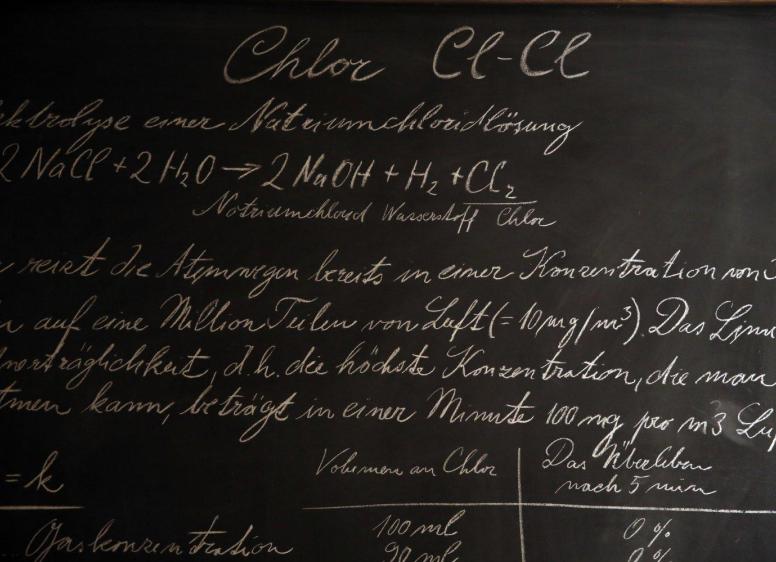 Chlor Cl-Cl
ektrolyse einer Natriumchloridlösung
2 NaCl + 2 H₂O → 2 NaOH + H₂ + Cl₂
Natriumchlorid Wasserstoff Chlor
reizt die Atemwegen bereits in einer Konzentration von
auf eine Million Teilen von Luft (= 10 mg/m³). Das
träglichkeit, d.h. die höchste Konzentration, die man
tmen kann, beträgt in einer Minute 100 mg pro m3 Luf
= k
Volumen an Chlor
Das Überleben
nach 5 min
Gaskonzentration
100 ml
0 %
90 ml
0 %